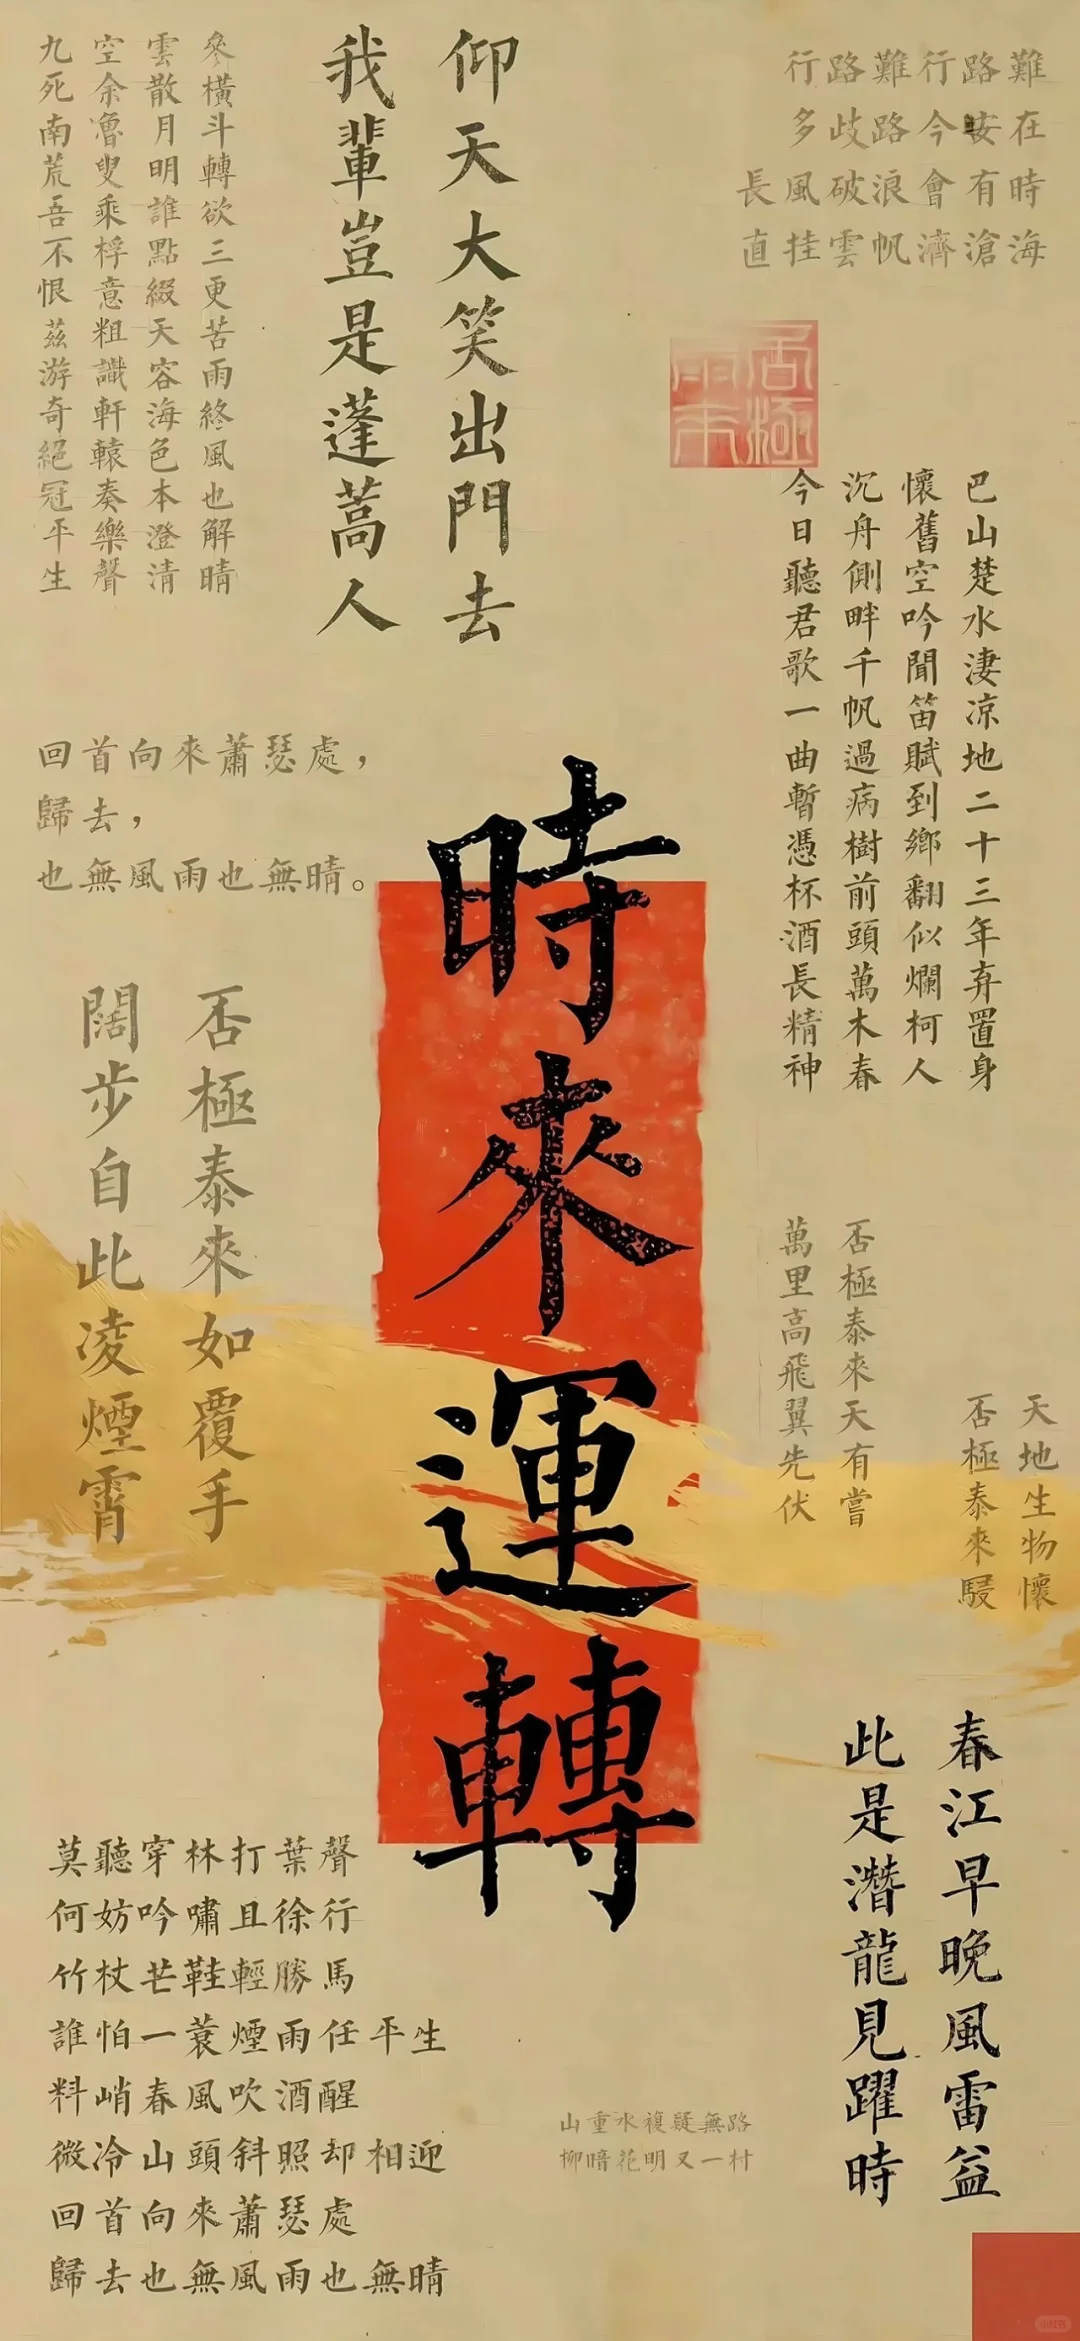 行路難行路難
多歧路今安在
長風破浪會有時
直挂雲帆濟滄海
仰天大笑出門去
我輩豈是蓬蒿人
參橫斗轉欲三更苦雨終風也解晴
雲散月明誰點綴天容海色本澄清
空余魯叟乘桴意粗識軒轅奏樂聲
九死南荒吾不恨茲游奇絕冠平生
否極
來
巴山楚水淒涼地二十三年弃置身
懷舊空吟聞笛賦到鄉翻似爛柯人
沉舟側畔千帆過病樹前頭萬木春
今日聽君歌一曲暫憑杯酒長精神
回首向來蕭瑟處，
歸去，
也無風雨也無晴。
時來運轉
否極泰來如覆手
闊步自此凌煙霄
否極泰來天有嘗
萬里高飛翼先伏
天地生物懷
否極泰來駸
春江早晚風雷益
此是潛龍見躍時
莫聽穿林打葉聲
何妨吟嘯且徐行
竹杖芒鞋輕勝馬
誰怕一蓑煙雨任平生
料峭春風吹酒醒
微冷山頭斜照却相迎
回首向來蕭瑟處
歸去也無風雨也無晴
山重水複疑無路
柳暗花明又一村
小红书